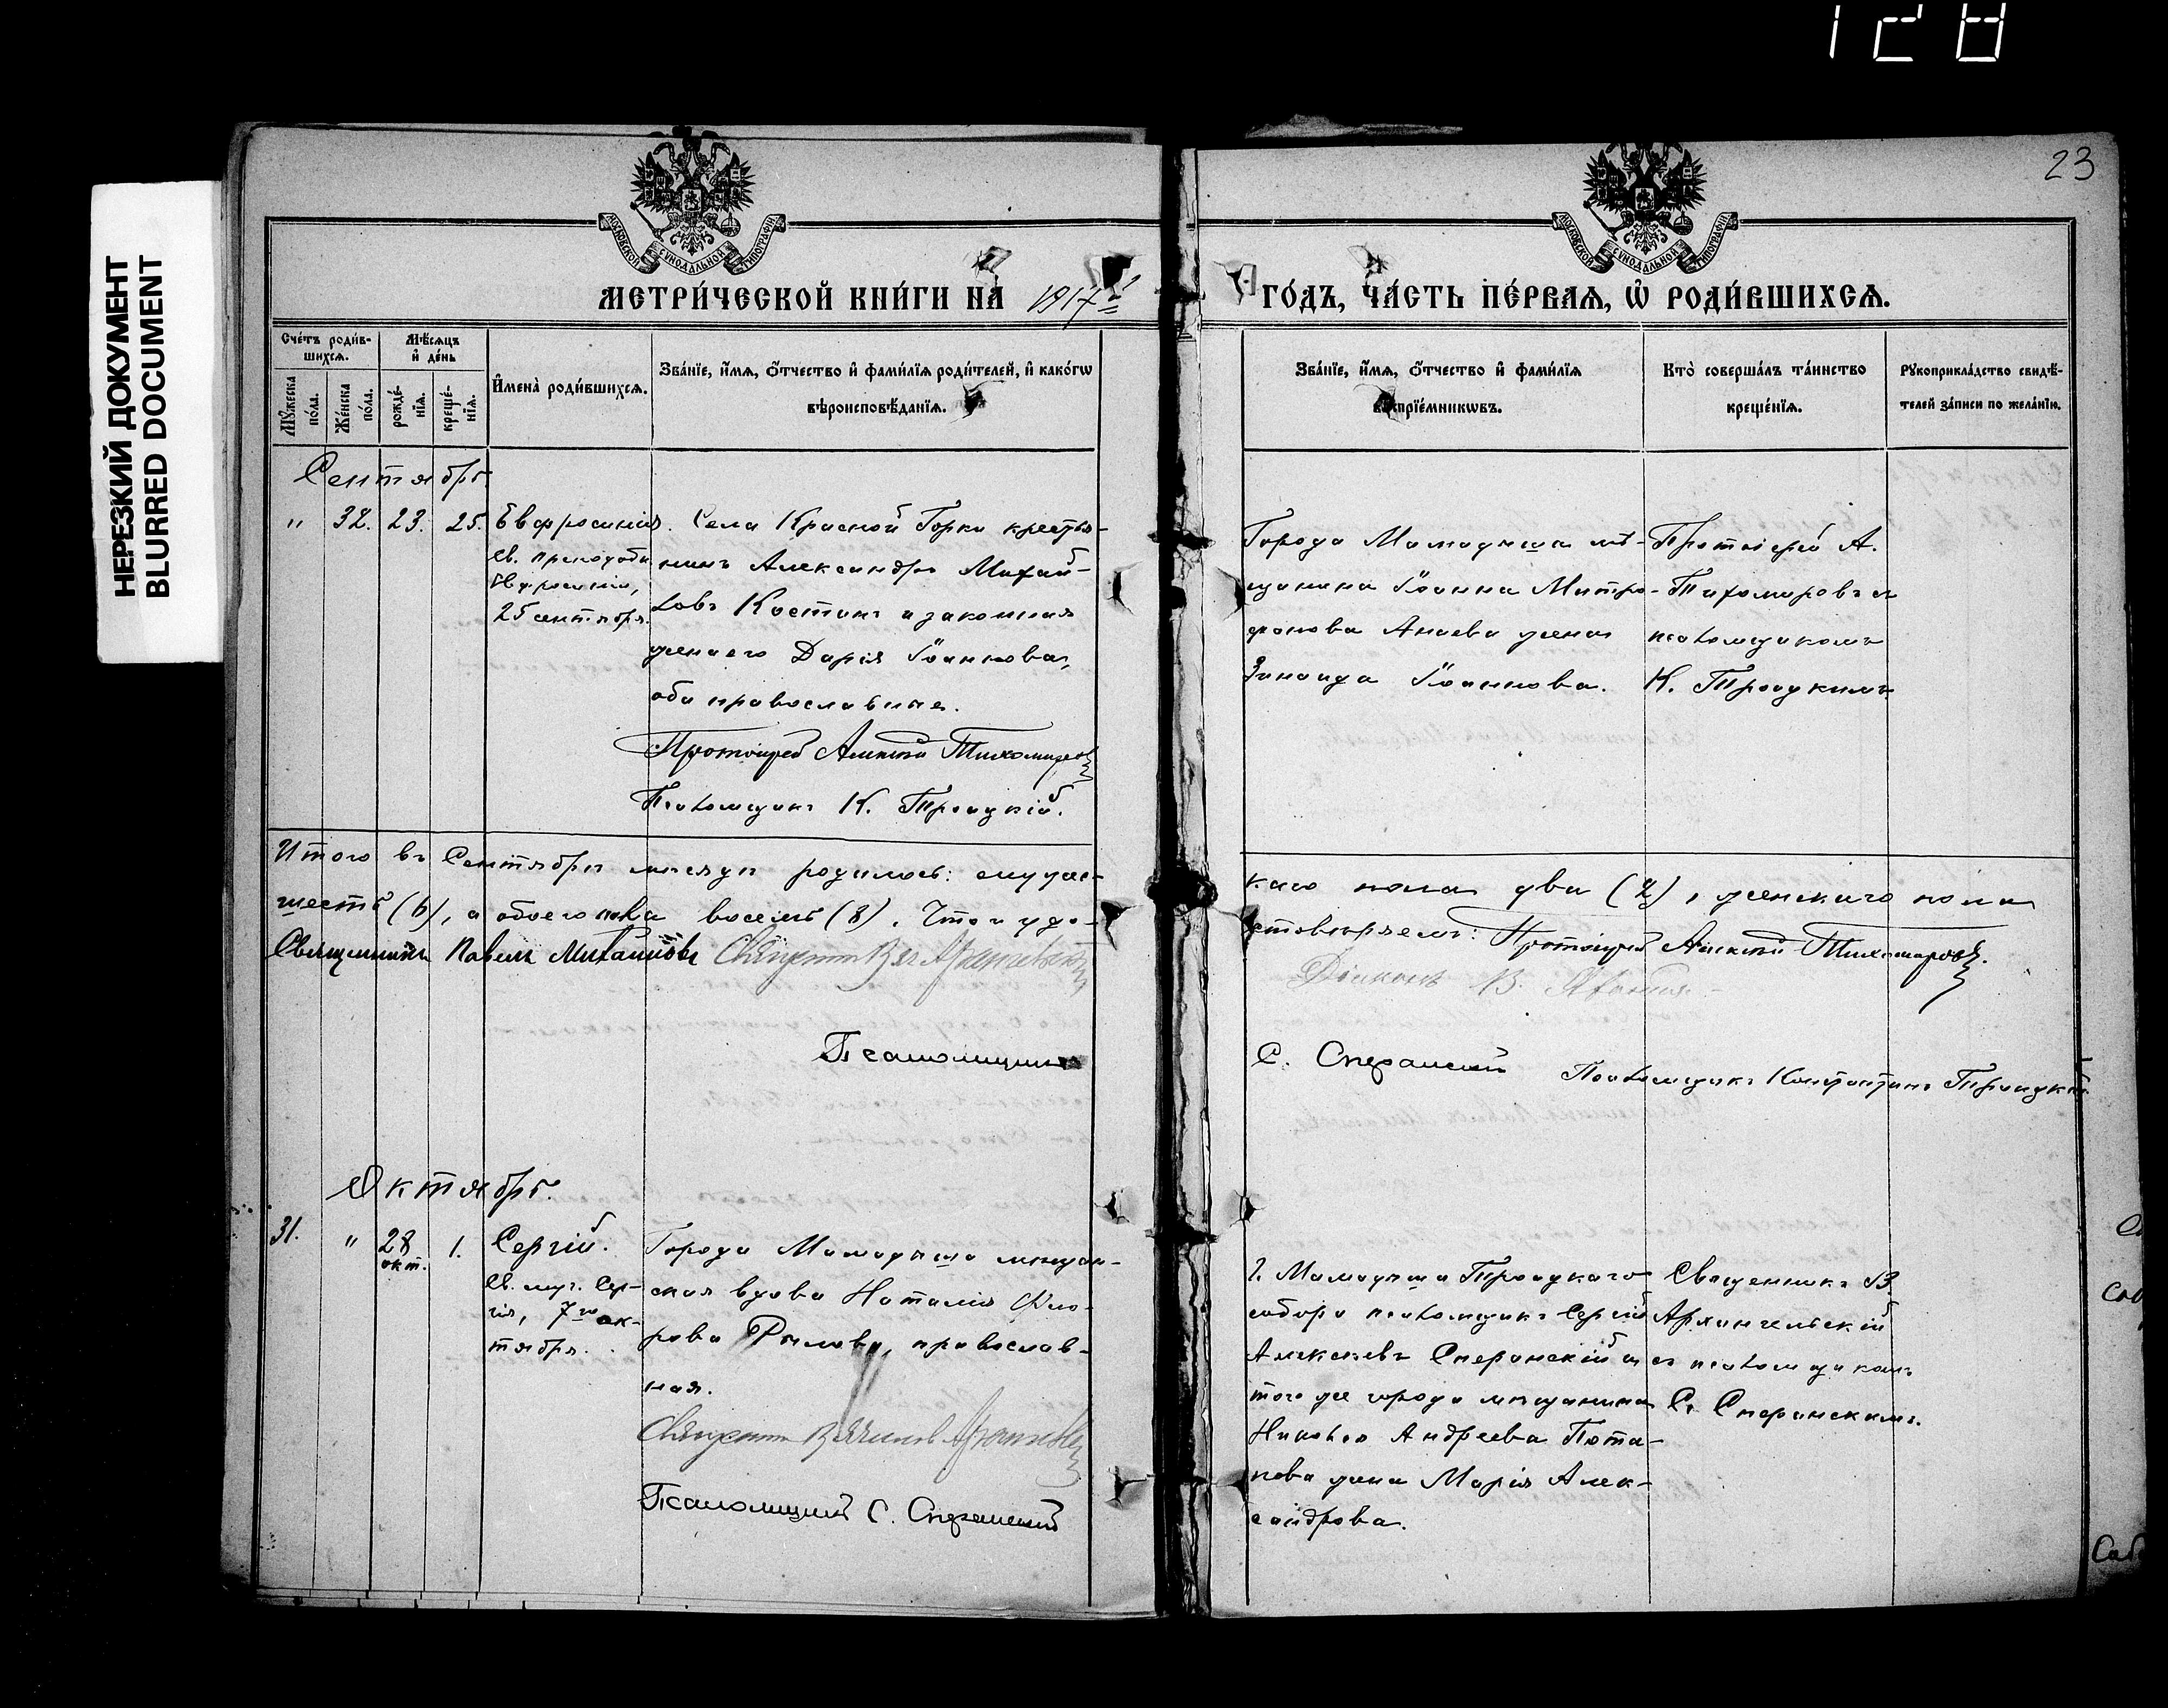 128
НЕРЕЗКИЙ ДОКУМЕНТ
BLURRED DOCUMENT
23
МОСКОВСКОЙ СѴНОДАЛЬНОЙ ТИПОГРАФІИ
МОСКОВСКОЙ СѴНОДАЛЬНОЙ ТИПОГРАФІИ
МЕТРИ́ЧЕСКОЙ КНИ́ГИ НА 1917й
ГО́ДЪ, ЧА́СТЬ ПЕ́РВАЯ, Ѡ РОДИ́ВШИХСЯ.
Сче́тъ роди́в-
шихся.
Мꙋ́жеска по́ла.
Же́нска по́ла.
Мѣ́сяцъ и де́нь
рожде́-нїя.
креще́-нїя.
И҆мена̀ роди́вшихся.
Зва́нїе, и҆́мя, ѻ҆́тчество и҆ фами́лїя роди́телей, и҆ како́гѡ
вѣроисповѣ́данїя.
Зва́нїе, и҆́мя, ѻ҆́тчество и҆ фами́лїя
воспрїе́мникѡвъ.
Кто̀ соверша́лъ та́инство
креще́нїя.
Рꙋкоприкла́дство свидѣ́-
телей за́писи по жела́нїю.
Сентябрь
" 32. 23. 25. Евфросинія.
св. преподобн.
Евфросиніи,
25 сентября.
Села Красной Горки крестья-
нинъ Александръ Михай-
ловъ Костинъ и законная
жена его Дарія Іоаннова,
оба православные.
Протоіерей Алексій Тихомировъ
Псаломщикъ К. Троицкій.
Города Мамадыша мѣ-
щанина Іоанна Митро-
фанова Анаева жена
Зинаида Іоаннова.
Протоіерей А.
Тихомировъ съ
псаломщикомъ
К. Троицкимъ
Итого въ Сентябрѣ мѣсяцѣ родилось: мужес-
каго пола два (2), женскаго пола
шесть (6), а обоего пола восемь (8). Что и удо-
стовѣряемъ: Протоіерей Алексій Тихомировъ.
Священникъ Павелъ Михайловъ Священникъ Вяч. Архангельскій
Діаконъ В.
Псаломщикъ
С. Сперанскій Псаломщикъ Константинъ Троицкій.
Октябрь.
31. " 28 окт. 1. Сергій.
Св. муч. Сер-
гія, 7го ок-
тября.
Города Мамадыша мѣщан-
ская вдова Наталія Фло-
рова Рылова, православ-
ная.
Священникъ Вячеслав Архангельскій
Псаломщикъ С. Сперанскій
Г. Мамадыша Троицкаго
собора псаломщикъ Сергій
Алексѣевъ Сперанскій и
того же города мѣщанина
Николая Андреева Пота-
пова жена Марія Алек-
сандрова.
Священникъ В.
Архангельскій
съ псаломщикомъ
С. Сперанскимъ.